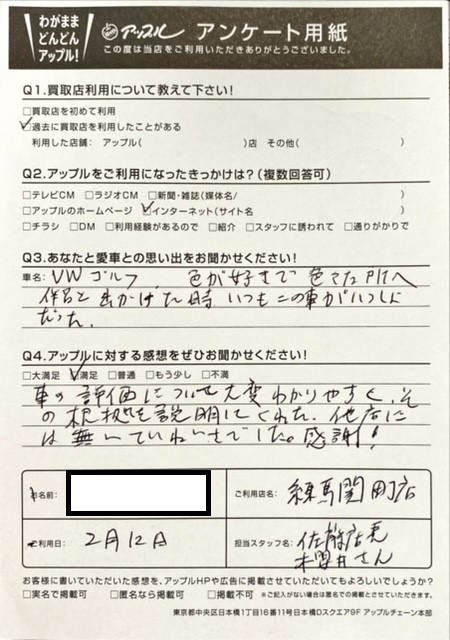 わがまま
どんどん
アップル!
アップル アンケート用紙
この度は当店をご利用いただきありがとうございました。
Q1.買取店利用について教えて下さい!
□買取店を初めて利用
☑過去に買取店を利用したことがある
利用した店舗: アップル( )店 その他( )
Q2.アップルをご利用になったきっかけは?(複数回答可)
□テレビCM □ラジオCM □新聞・雑誌(媒体名/ )
□アップルのホームページ ☑インターネット(サイト名 )
□チラシ □DM □利用経験があるので □紹介 □スタッフに誘われて □通りがかりで
Q3.あなたと愛車との思い出をお聞かせください!
車名: VW ゴルフ 色が好きで 色々な所へ
出かけた時 いつもこの車がいっしょ
だった。
Q4.アップルに対する感想をぜひお聞かせください!
□大満足 ☑満足 □普通 □もう少し □不満
車の評価について大変わかりやすく、そ
の根拠を説明してくれた。他店に
は無いていねいさでした。感謝!
お名前:
ご利用店名: 練馬関町店
ご利用日: 2月12日
担当スタッフ名: 佐藤店長
さん
お客様に書いていただいた感想を、アップルHPや広告に掲載させていただいてもよろしいでしょうか?
□実名で掲載可 □匿名なら掲載可 □掲載不可 ※ご記入がない場合は匿名での掲載とさせていただきます。
東京都中央区日本橋1丁目16番11号日本橋Dスクエア9F アップルチェーン本部